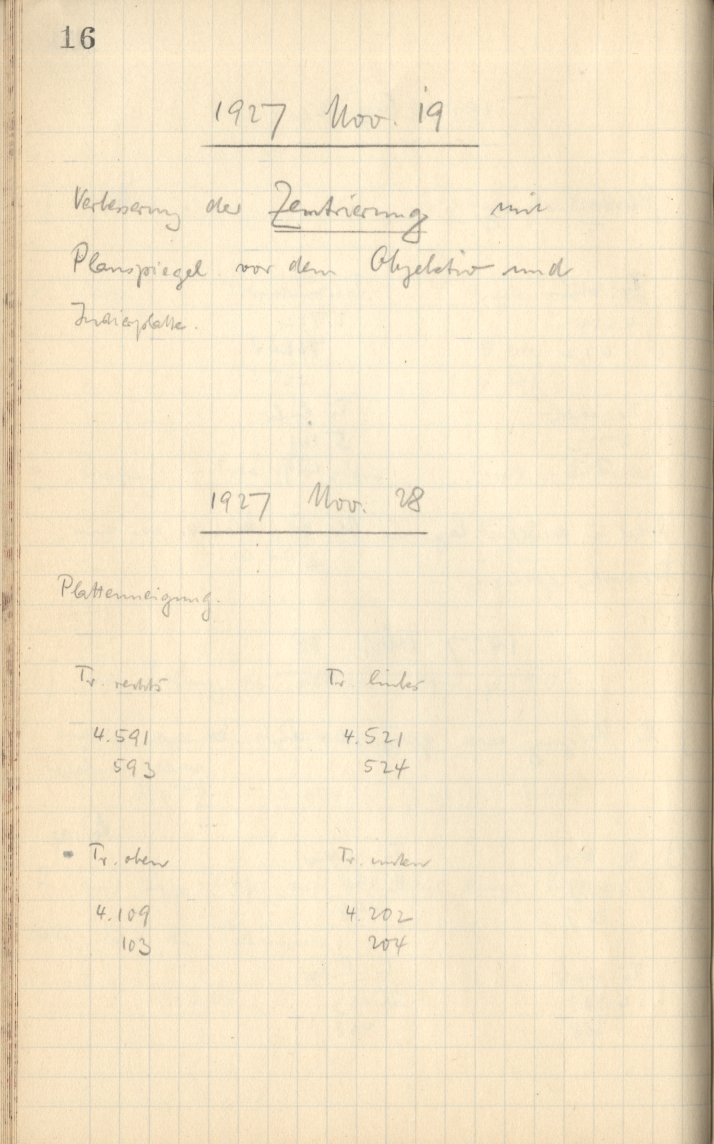 16
1927 Nov. 19
Verbesserung der Zentrierung mit
Planspiegel vor dem Objektiv und
1927 Nov. 28
Plattenneigung.
Tr. rechts Tr. links
4.591 4.521
593 524
Tr. oben Tr. unten
4.109 4.202
103 204